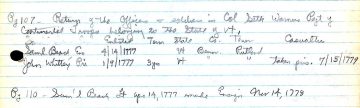 Pg 107 - Return of the Officers & soldiers in Col Seth Warner Regt of
Continental Troops belonging to the State of Vt.
Enlisted Term State Co. Town Casualties
Saml Beach Ens 4/14/1777 Vt Rutland
John Whitley Pri 1/9/1777 3yrs Vt " taken pris. 7/15/1779
Pg 110 - Sam'l Beach Apr 14, 1777 made Ensign Nov 14, 1778